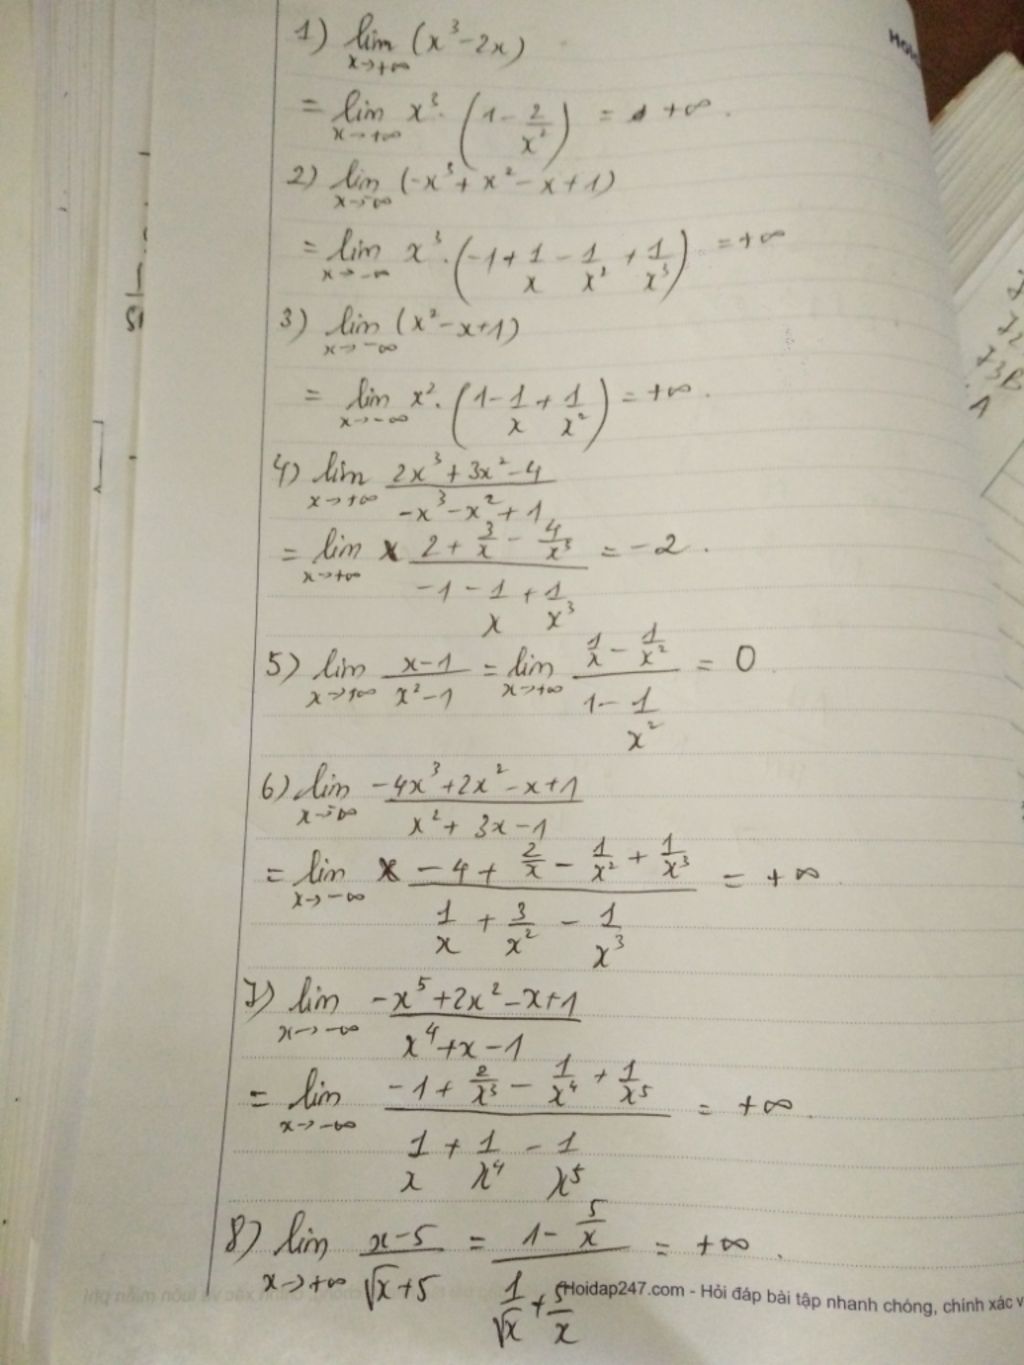 1) lim x→+∞ (x³-2x)
= lim x→+∞ x³. (1 - 2/x²) = +∞.
2) lim x→-∞ (-x³+x²-x+1)
= lim x→-∞ x³.(-1+1/x - 1/x² + 1/x³) = +∞
3) lim x→-∞ (x²-x+1)
= lim x→-∞ x². (1-1/x + 1/x²) = +∞.
4) lim x→+∞ (2x³+3x²-4)/(-x³-x²+1)
= lim x→+∞ (2 + 3/x - 4/x³)/(-1 - 1/x + 1/x³) = -2.
5) lim x→+∞ (x-1)/(x²-1) = lim x→+∞ (1/x - 1/x²)/(1 - 1/x²) = 0
6) lim x→-∞ (-4x³+2x²-x+1)/(x²+3x-1)
= lim x→-∞ (-4 + 2/x - 1/x² + 1/x³)/(1/x + 3/x² - 1/x³) = +∞
7) lim x→-∞ (-x⁵+2x²-x+1)/(x⁴+x-1)
= lim x→-∞ (-1 + 2/x³ - 1/x⁴ + 1/x⁵)/(1/x + 1/x⁴ - 1/x⁵) = +∞.
8) lim x→+∞ (x-5)/(√x+5) = (1 - 5/x)/(1/√x + 5/x) = +∞.
Hoidap247.com - Hỏi đáp bài tập nhanh chóng, chính xác v